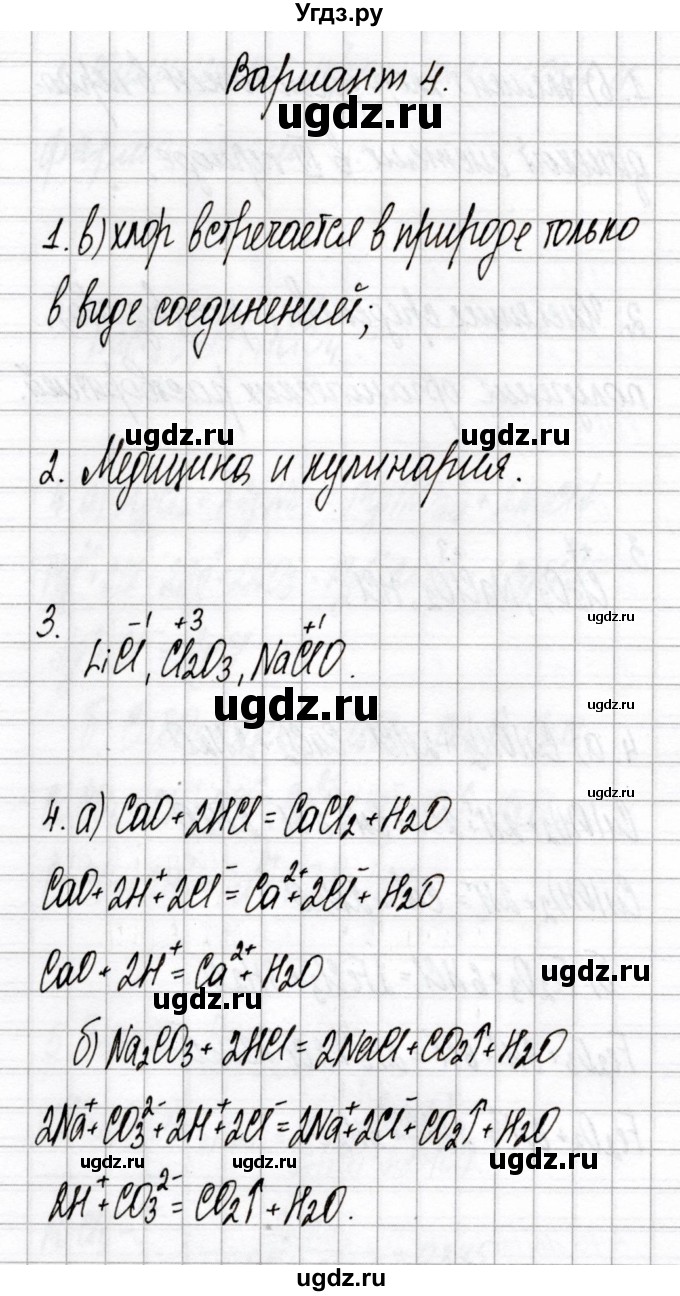 Угдз.ру
Вариант 4.
ugdz.ru
1. в) хлор встречается в природе только
в виде соединений;
ugdz.ru ugdz.ru
2. Медицина и кулинария.
ugdz.ru
3. Li\overset{-1}{Cl}, \overset{+3}{Cl}₂O₃, Na\overset{+1}{Cl}O.
ugdz.ru
ugdz.ru
4. а) CaO + 2HCl = CaCl₂ + H₂O
CaO + 2H⁺ + 2Cl⁻ = Ca²⁺ + 2Cl⁻ + H₂O
CaO + 2H⁺ = Ca²⁺ + H₂O
ugdz.ru
ugdz.ru
б) Na₂CO₃ + 2HCl = 2NaCl + CO₂↑ + H₂O
2Na⁺ + CO₃²⁻ + 2H⁺ + 2Cl⁻ = 2Na⁺ + 2Cl⁻ + CO₂↑ + H₂O
ugdz.ru ugdz.ru ugdz.ru
2H⁺ + CO₃²⁻ = CO₂↑ + H₂O.
ugdz.ru